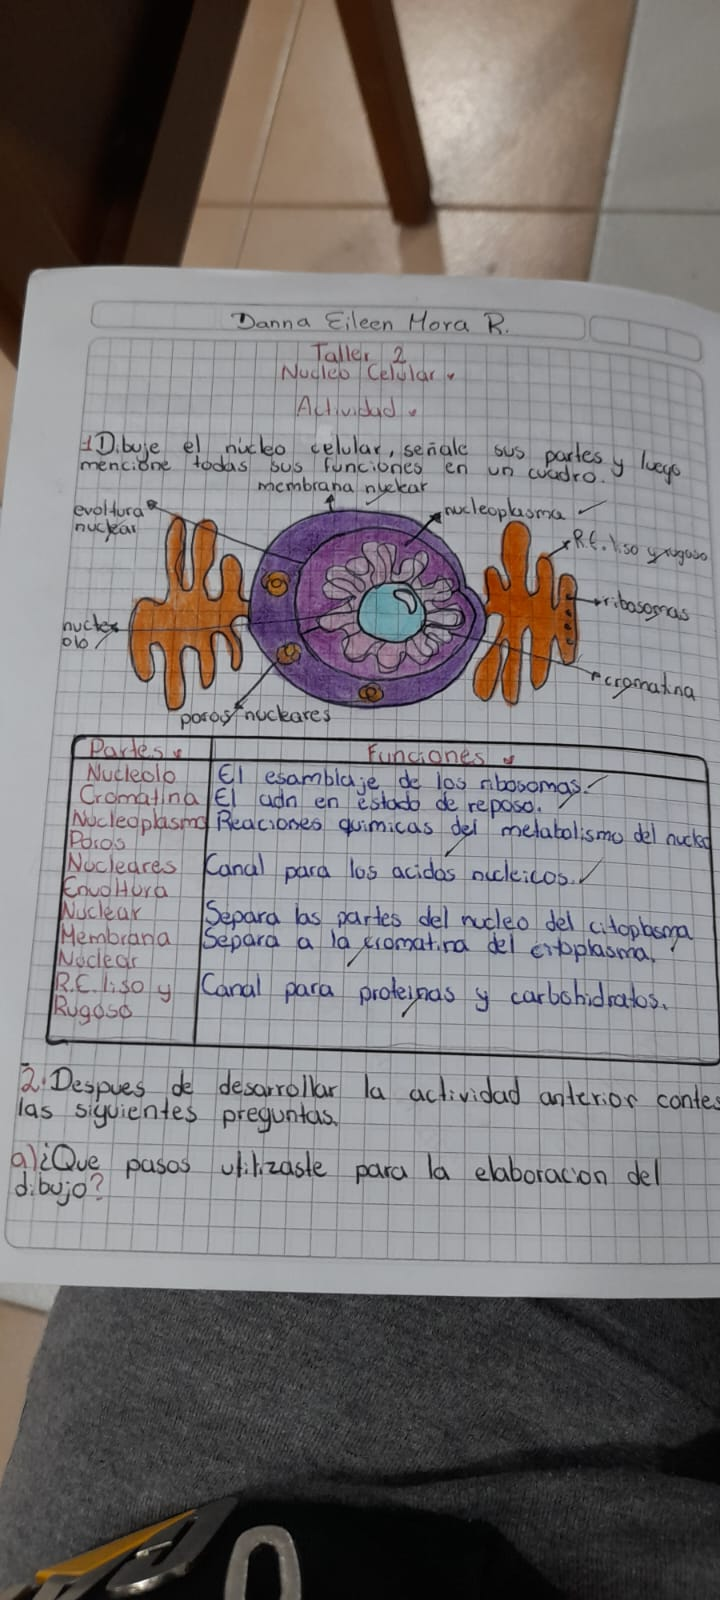 Danna Eileen Mora R.
Taller 2
Nucleo Celular
Actividad
1 Dibuje el núcleo celular, señale sus partes y luego
mencione todas sus funciones en un cuadro.
membrana nuclear
evoltura
nuclear
nucleoplasma
R.E. liso y rugoso
ribosomas
nucle
olo
cromatina
poros nucleares
Partes
Funciones
Nucleolo El esamblaje de los ribosomas.
Cromatina El adn en estado de reposo.
Nucleoplasma Reaciones quimicas del metabolismo del nucleo
Poros
Nucleares Canal para los acidos nucleicos.
Envoltura
Nuclear Separa las partes del nucleo del citoplasma
Membrana Separa a la cromatina del citoplasma.
Nuclear
R.E. liso y Canal para proteinas y carbohidratos.
Rugoso
2. Despues de desarrollar la actividad anterior contes
las siguientes preguntas.
a) ¿Que pasos utilizaste para la elaboracion del
dibujo?